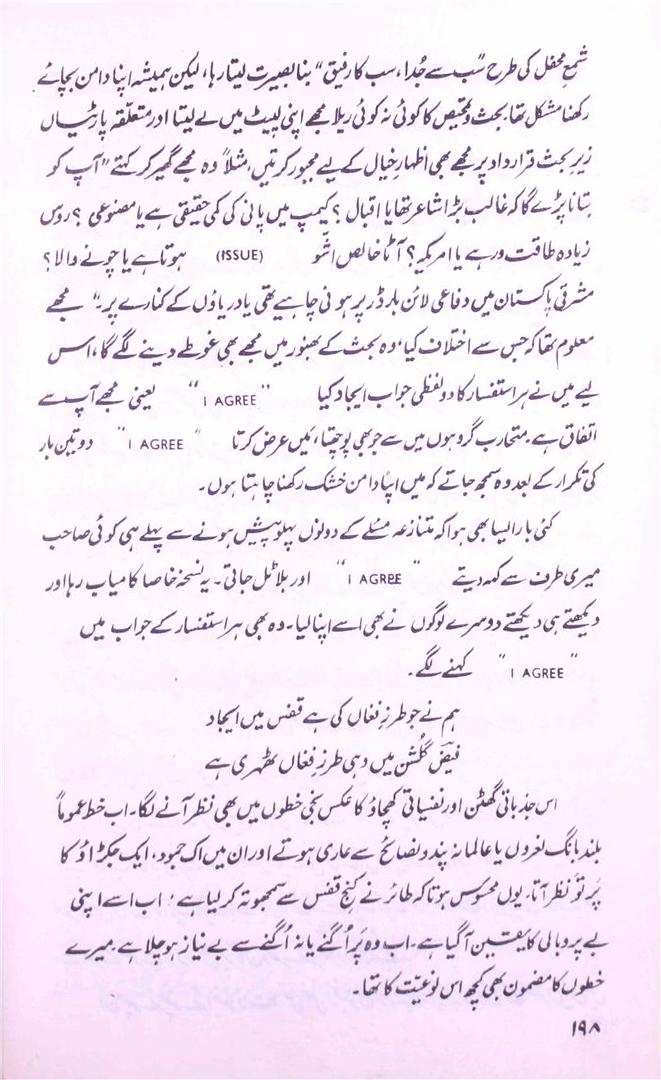 شمعِ محفل کی طرح ”سب سے جُدا، سب کا رفیق“ بنا بصیرت لیتا رہا، لیکن ہمیشہ اپنا دامن بچائے
رکھنا مشکل تھا۔ بحث و تمحیص کا کوئی نہ کوئی ریلا مجھے اپنی لپیٹ میں لے لیتا اور متعلقہ پارٹیاں
زیرِ بحث قرارداد پر مجھے بھی اظہارِ خیال کے لیے مجبور کرتیں، مثلاً وہ مجھے گھیر کر کہتے ”آپ کو
بتانا پڑے گا کہ غالب بڑا شاعر تھا یا اقبال؟ کیمپ میں پانی کی کمی حقیقی ہے یا مصنوعی؟ روس
زیادہ طاقت ور ہے یا امریکہ؟ آٹا خالص اشُو (ISSUE) ہوتا ہے یا چونے والا؟
مشرقی پاکستان میں دفاعی لائن بارڈر پر ہونی چاہیے تھی یا دریاؤں کے کنارے پر۔“ مجھے
معلوم تھا کہ جس سے اختلاف کیا، وہ بحث کے بھنور میں مجھے بھی غوطے دینے لگے گا، اس
لیے میں نے ہر استفسار کا دو لفظی جواب ایجاد کیا ”I AGREE“ یعنی مجھے آپ سے
اتفاق ہے۔ متحارب گروہوں میں سے جو بھی پوچھتا، میں عرض کرتا ”I AGREE“ دو تین بار
کی تکرار کے بعد وہ سمجھ جاتے کہ میں اپنا دامن خشک رکھنا چاہتا ہوں۔
کئی بار ایسا بھی ہوا کہ متنازعہ مسئلے کے دونوں پہلو پیش ہونے سے پہلے ہی کوئی صاحب
میری طرف سے کہہ دیتے ”I AGREE“ اور بلا ٹل جاتی۔ یہ نسخہ خاصا کامیاب رہا اور
دیکھتے ہی دیکھتے دوسرے لوگوں نے بھی اسے اپنا لیا۔ وہ بھی ہر استفسار کے جواب میں
”I AGREE“ کہنے لگے۔
ہم نے جو طرزِ فغاں کی ہے قفس میں ایجاد
فیضؔ گلشن میں وہی طرزِ فغاں ٹھہری ہے
اس جذباتی گھٹن اور نفسیاتی کھچاؤ کا عکس نجی خطوں میں بھی نظر آنے لگا۔ اب خط عموماً
بلند بانگ نعروں یا عالمانہ پند و نصائح سے عاری ہوتے اور ان میں اک جمود، ایک جکڑاؤ کا
پَرتَو نظر آتا۔ یوں محسوس ہوتا کہ طائر نے کنجِ قفس سے سمجھوتہ کر لیا ہے؛ اب اسے اپنی
بے پر و بالی کا یقین آ گیا ہے۔ اب وہ پَر اُگنے یا نہ اُگنے سے بے نیاز ہو چلا ہے۔ میرے
خطوں کا مضمون بھی کچھ اس نوعیّت کا تھا۔
۱۹۸